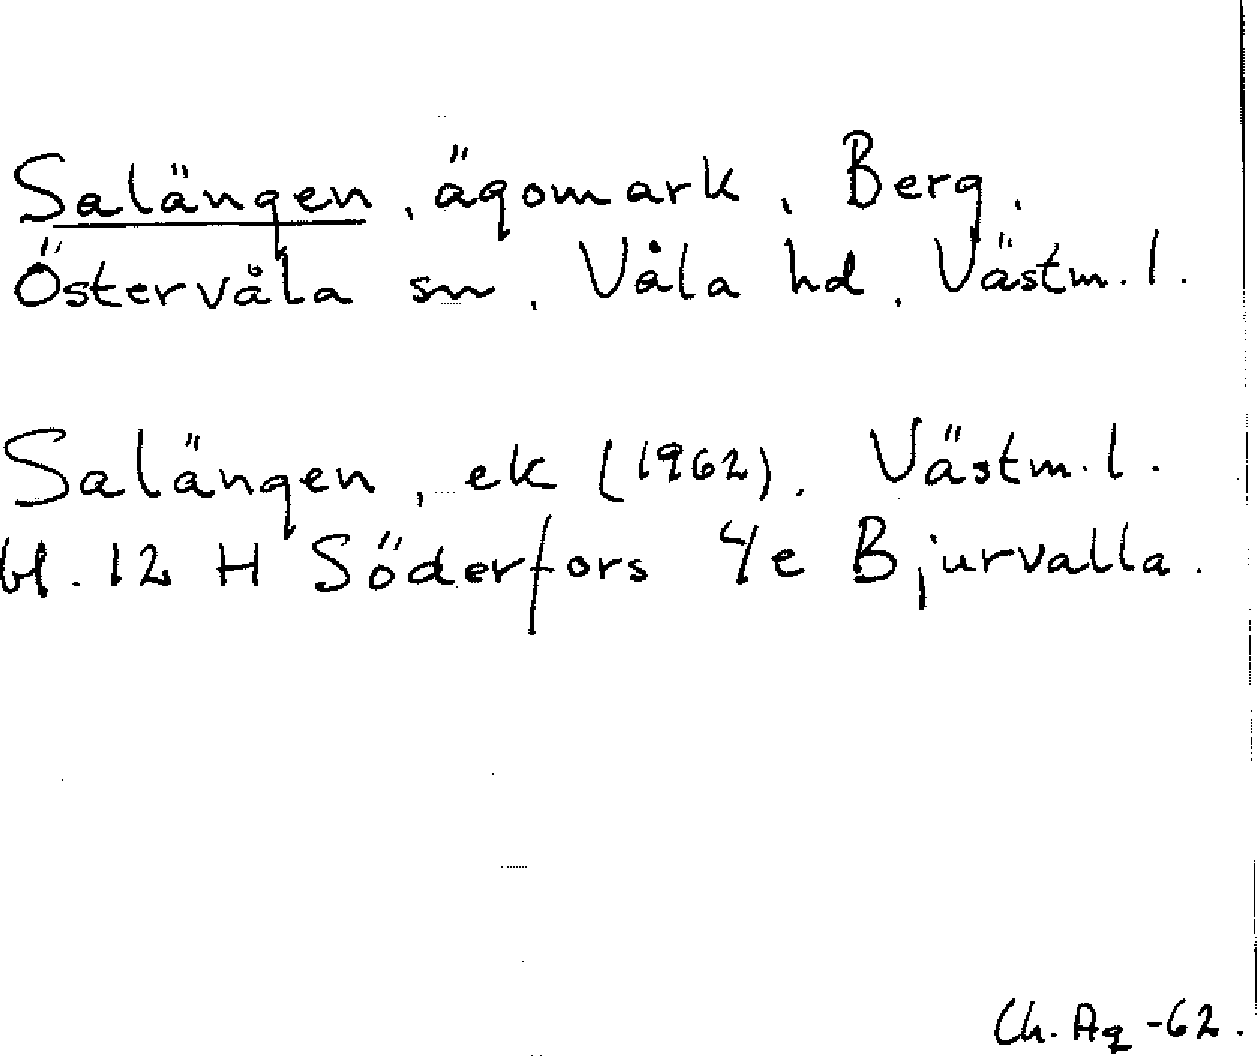 Salängen, ägomark, Berg,
Östervåla sn, Våla hd, Västm. l.
Salängen, ek (1962), Västm. l.
bl. 12 H Söderfors 4e Bjurvalla.
Ch. Ag -62.